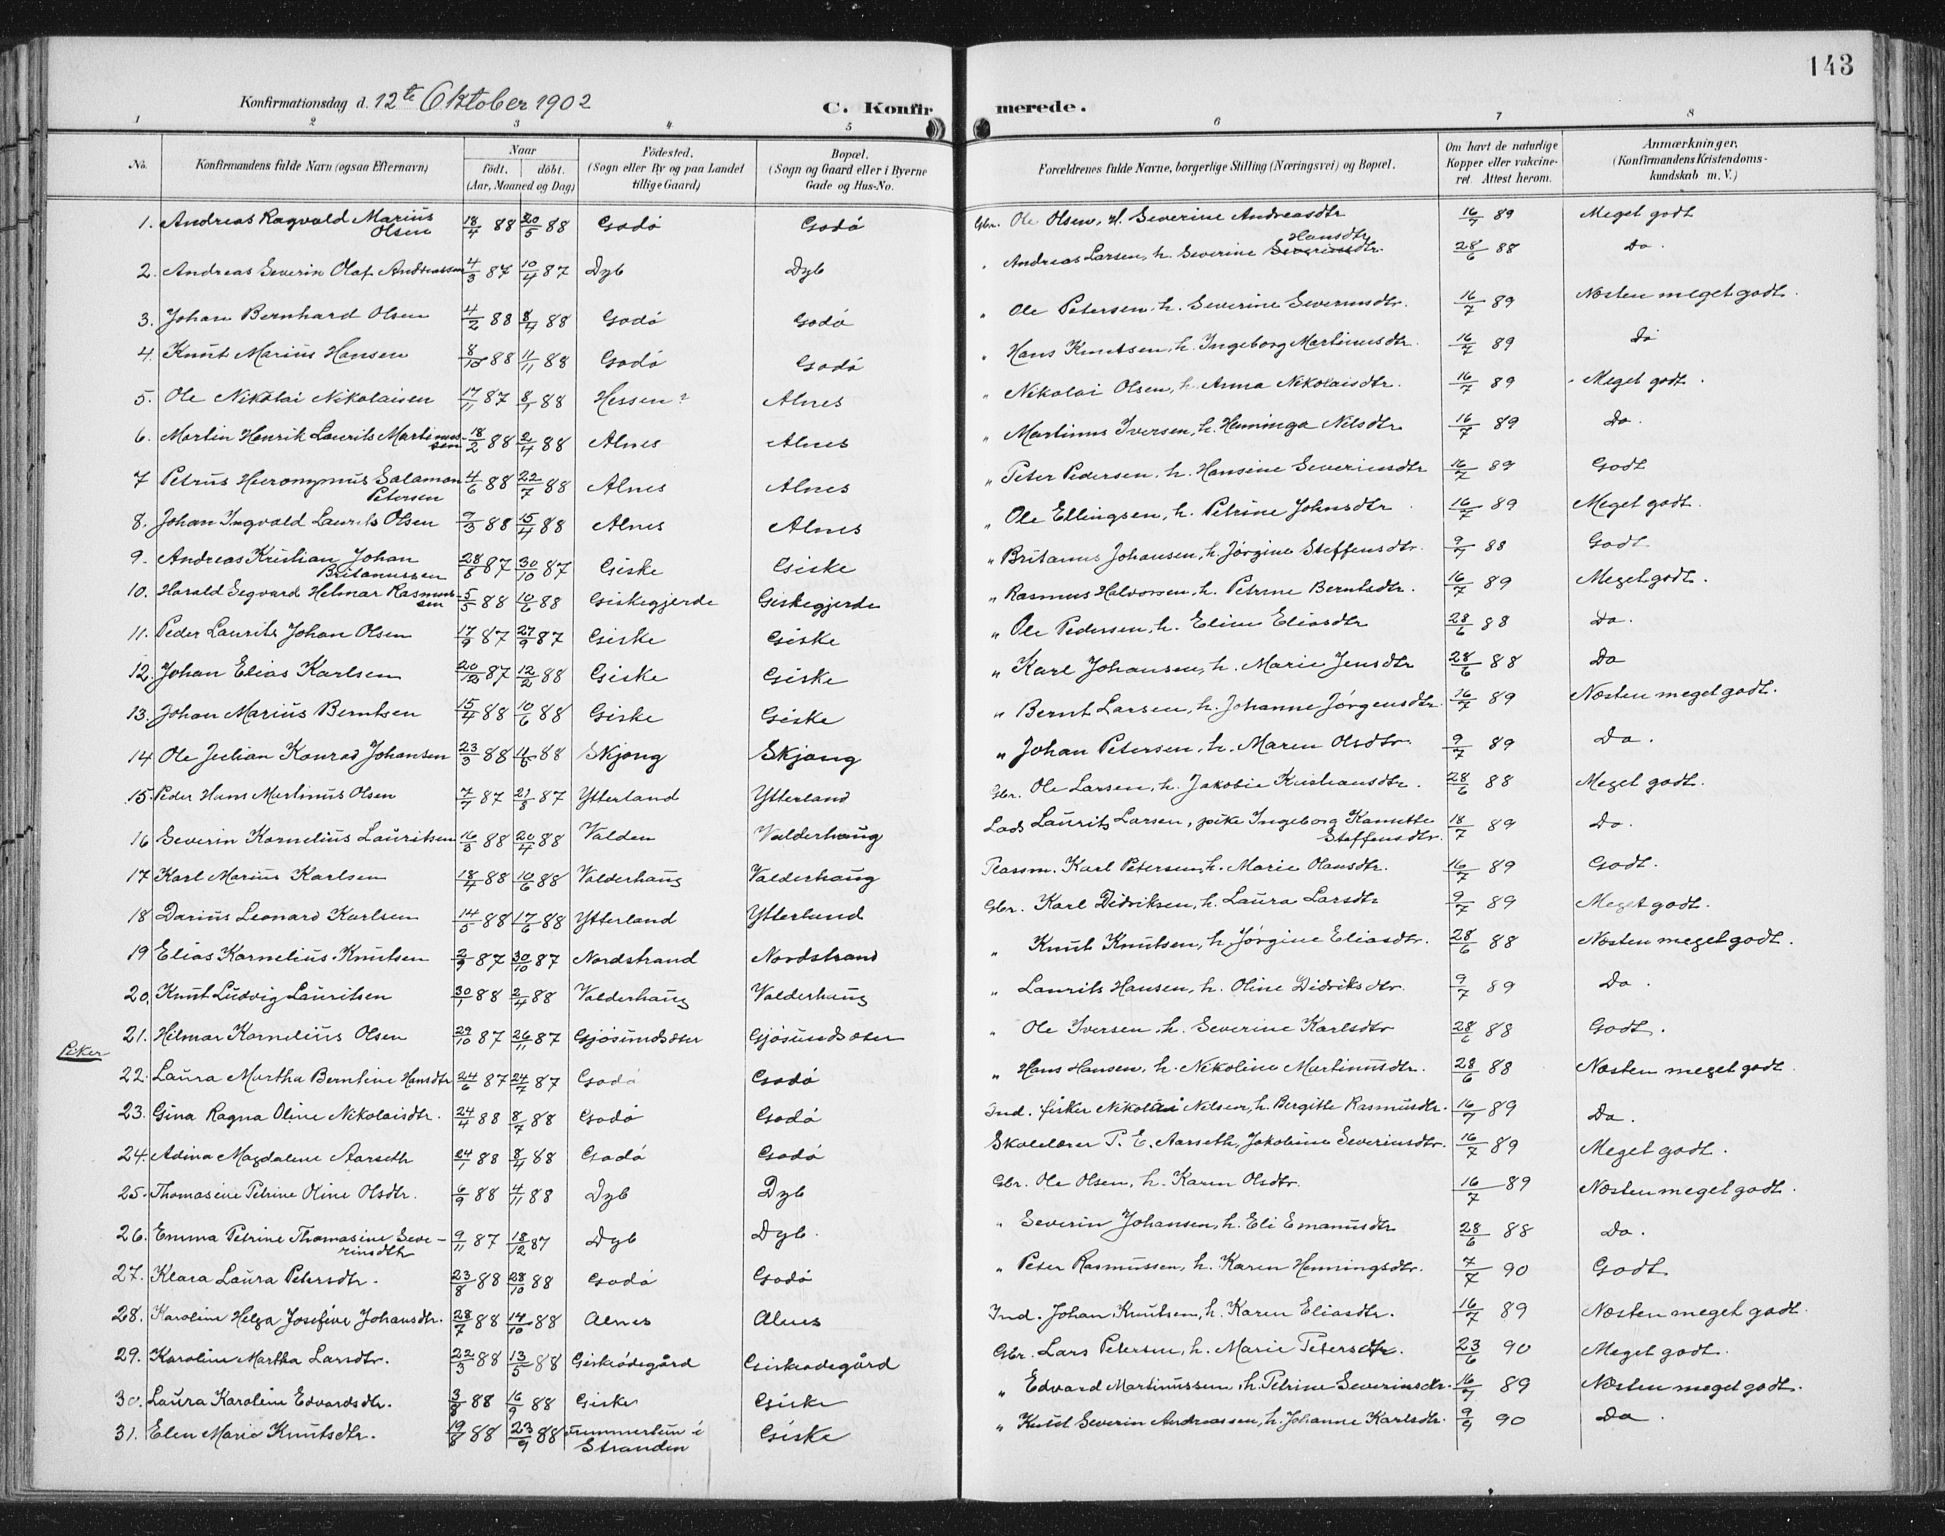 143
Konfirmationsdag d. 12te Oktober 1902 C. Konfir merede.
1 2 3 4 5 6 7 8
No. Konfirmandens fulde Navn (ogsaa Efternavn) Naar født. døbt. (Aar, Maaned og Dag) Fødested. (Sogn eller By og paa Landet tillige Gaard) Bopæl. (Sogn og Gaard eller i Byerne Gade og Hus-No. Forældrenes fulde Navne, borgerlige Stilling (Næringsvei) og Bopæl. Om havt de naturlige Kopper eller vakcineret. Attest herom. Anmærkninger. (Konfirmandens Kristendomskundskab m. V.)
1. Andreas Ragvald Marius Olsen 18/4 88 20/5 88 Godø Godø Gbr. Ole Olsen, H. Severine Andreasdtr 16/7 89 Meget godt
2. Andreas Severin Olaf Andreassen 4/3 87 10/4 87 Dyb Dyb " Andreas Larsen, h. Severine Severinsdtr. Hansdtr 28/6 88 Do.
3. Johan Bernhard Olsen 4/2 88 8/4 88 Godø Godø " Ole Petersen, h. Severine Severinsdtr. 16/7 89 Næsten meget godt.
4. Knut Marius Hansen 8/10 88 11/11 88 Godø Godø " Hans Knutsen, h. Ingeborg Martinusdtr. 16/7 89 Do
5. Ole Nikolai Nikolaisen 17/11 87 8/1 88 Hessen? Alnes " Nikolai Olsen, h. Anna Nikolaisdtr. 16/7 89 Meget godt.
6. Martin Henrik Laurits Martinussen 18/2 88 2/4 88 Alnes Alnes " Martinus Iversen, h. Heminga Nilsdtr 16/7 89 Do.
7 Petrus Hieronymus Salamon Petersen 4/6 88 22/7 88 Alnes Alnes " Peter Pedersen, h. Hansine Severinsdtr 16/7 89 Godt
8. Johan Ingvald Laurits Olsen 9/3 88 15/4 88 Alnes Alnes " Ole Ellingsen, h. Petrine Johnsdtr 16/7 89 Meget godt.
9. Andreas Kristian Johan Britanussen 28/8 87 30/10 87 Giske Giske " Britanus Johansen, h. Jørgine Steffensdtr. 9/7 88 Godt
10. Harald Segvard Helmar Rasmussen 5/5 88 10/6 88 Giskegjerde Giskegjerde " Rasmus Halvorsen, h. Petrine Berntsdtr. 16/7 89 Meget godt.
11. Peder Laurits Johan Olsen 17/9 87 27/9 87 Giske Giske " Ole Pedersen, h. Eline Eliasdtr 28/6 88 Do.
12. Johan Elias Karlsen 20/12 87 12/2 88 Giske Giske " Karl Johansen, h. Marie Jensdtr 28/6 88 Do
13. Johan Marius Berntsen 15/4 88 10/6 88 Giske Giske " Bernt Larsen, h. Johanne Jørgensdtr. 16/7 89 Næsten meget godt.
14 Ole Julian Konrad Johansen 23/3 88 88 Skjong Skjong " Johan Petersen, h. Maren Olsdtr. 9/7 89 Do.
15. Peder Hans Martinus Olsen 7/7 87 21/8 87 Ytterland Ytterland Gbr. Ole Larsen, h. Jakobie Kristiansdtr. 28/6 88 Meget godt.
16 Severin Kornelius Lauritsen 16/3 88 20/4 88 Valden Valderhaug Lods Laurits Larsen, pike Ingeborg Kanutte Steffensdtr. 18/7 89 Do.
17 Karl Marius Karlsen 18/4 88 10/6 88 Valderhaug Valderhaug Plassm. Karl Petersen, h. Marie Olausdtr. 16/7 89 Godt.
18 Darius Leonard Karlsen 14/5 88 17/6 88 Ytterland Ytterland Gbr. Karl Didriksen, h. Laura Larsdtr 9/7 89 Meget godt.
19 Elias Kornelius Knutsen 2/9 87 30/10 87 Nordstrand Nordstrand " Knut Knutsen, h. Jørgine Eliasdtr. 28/6 88 Næsten meget godt.
20. Knut Ludvig Lauritsen 30/1 88 2/4 88 Valderhaug Valderhaug " Laurits Hansen, h. Oline Didriksdtr. 9/7 89 Do.
21. Hilmar Kornelius Olsen 29/10 87 26/11 87 Gjøsundsøter Gjøsundsøter " Ole Iversen, h. Severine Karlsdtr 28/6 88 Godt.
Piker
22. Laura Martha Berntine Hansdtr 24/6 87 24/7 87 Godø Godø " Hans Hansen, h. Nikoline Martinusdtr. 28/6 88 Næsten meget godt
23. Gina Ragna Oline Nikolaisdtr. 24/4 88 8/7 88 Godø Godø Ind. fisker Nikolai Nilsen, h. Bergitte Rasmusdtr. 16/7 89 Do.
24. Adina Magdalene Aarseth 24/1 88 8/4 88 Godø Godø Skolelærer P. E. Aarseth, Jakobine Severinsdtr. 16/7 89 Meget godt.
25. Thomasine Petrine Oline Olsdtr. 6/9 88 4/11 88 Dyb Dyb Gbr. Ole Olsen, h. Karen Olsdtr. 16/7 89 Næsten meget godt.
26. Emma Petrine Thomasine Severinsdtr 9/11 87 18/12 87 Dyb Dyb. " Severin Johansen, h. Eli Emanusdtr 28/6 88 Do.
27. Klara Laura Petersdtr. 23/8 88 28/10 88 Godø Godø " Peter Rasmussen, h. Karen Henningsdtr. 7/7 90 Godt
28. Karoline Helga Josefine Johansdtr. 28/7 88 14/10 88 Alnes Alnes Ind. Johan Knutsen, h. Karen Eliasdtr. 16/7 89 Næsten meget godt.
29. Karoline Martha Larsdtr. 22/3 88 13/5 88 Giskeødegård Giskeødegård Gbr. Lars Petersen, h. Marie Petersdtr. 23/6 90 Meget godt.
30. Laura Karoline Edvardsdtr. 3/8 88 16/9 88 Giske Giske " Edvard Martinussen, h. Petrine Severinsdtr. 16/7 89 Næsten meget godt.
31. Elen Marie Knutsdtr. 19/8 88 23/9 88 i Stranden Giske " Knut Severin Andreassen, h. Johanne Karlsdtr. 9/9 90 Do.